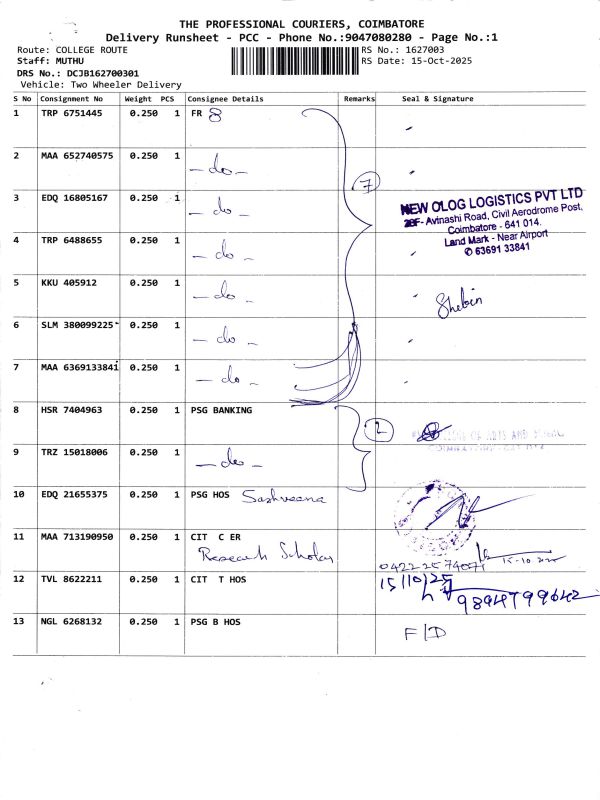 THE PROFESSIONAL COURIERS, COIMBATORE
Delivery Runsheet - PCC - Phone No.:9047080280 - Page No.:1
Route: COLLEGE ROUTE RS No.: 1627003
Staff: MUTHU RS Date: 15-Oct-2025
DRS No.: DCJB162700301
Vehicle: Two Wheeler Delivery
S No Consignment No Weight PCS Consignee Details Remarks Seal & Signature
1 TRP 6751445 0.250 1 FR 8
2 MAA 652740575 0.250 1 - do -
7
3 EDQ 16805167 0.250 1 - do -
NEW OLOG LOGISTICS PVT LTD
28F- Avinashi Road, Civil Aerodrome Post,
Coimbatore - 641 014.
Land Mark - Near Airport
✆ 63691 33841
4 TRP 6488655 0.250 1 - do -
5 KKU 405912 0.250 1 - do -
Shebin
6 SLM 380099225 0.250 1 - do -
7 MAA 6369133841 0.250 1 - do -
8 HSR 7404963 0.250 1 PSG BANKING
2
9 TRZ 15018006 0.250 1 - do -
10 EDQ 21655375 0.250 1 PSG HOS
11 MAA 713190950 0.250 1 CIT C ER
Research Scholar
04222574071 15-10-2025
12 TVL 8622211 0.250 1 CIT T HOS
15/10/25
9894799642
13 NGL 6268132 0.250 1 PSG B HOS
F/D